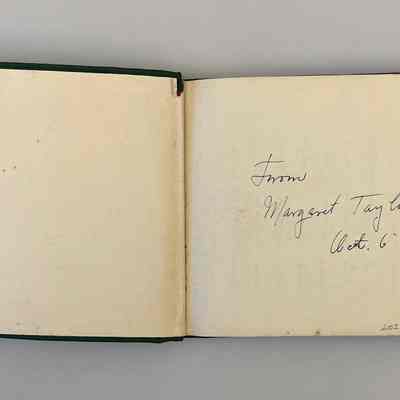 From
Margaret Taylo
Oct. 6